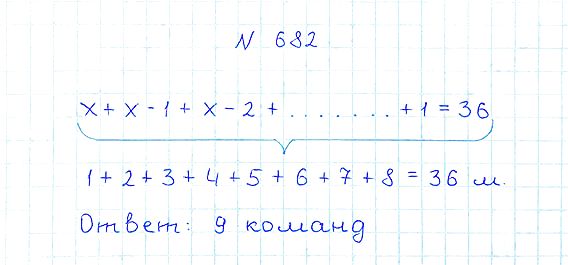 N 682
x + x - 1 + x - 2 + ........ + 1 = 36
1 + 2 + 3 + 4 + 5 + 6 + 7 + 8 = 36 м.
Ответ: 9 команд